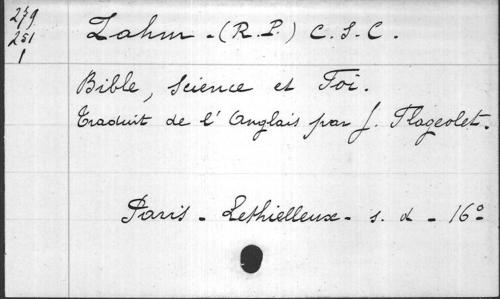 279
251
1
Zahm - (R.P.) C.S.C.
Bible, Science et Foi.
Traduit de l'Anglais par J. Flageolet.
Paris - Lethielleux - s. d - 16º